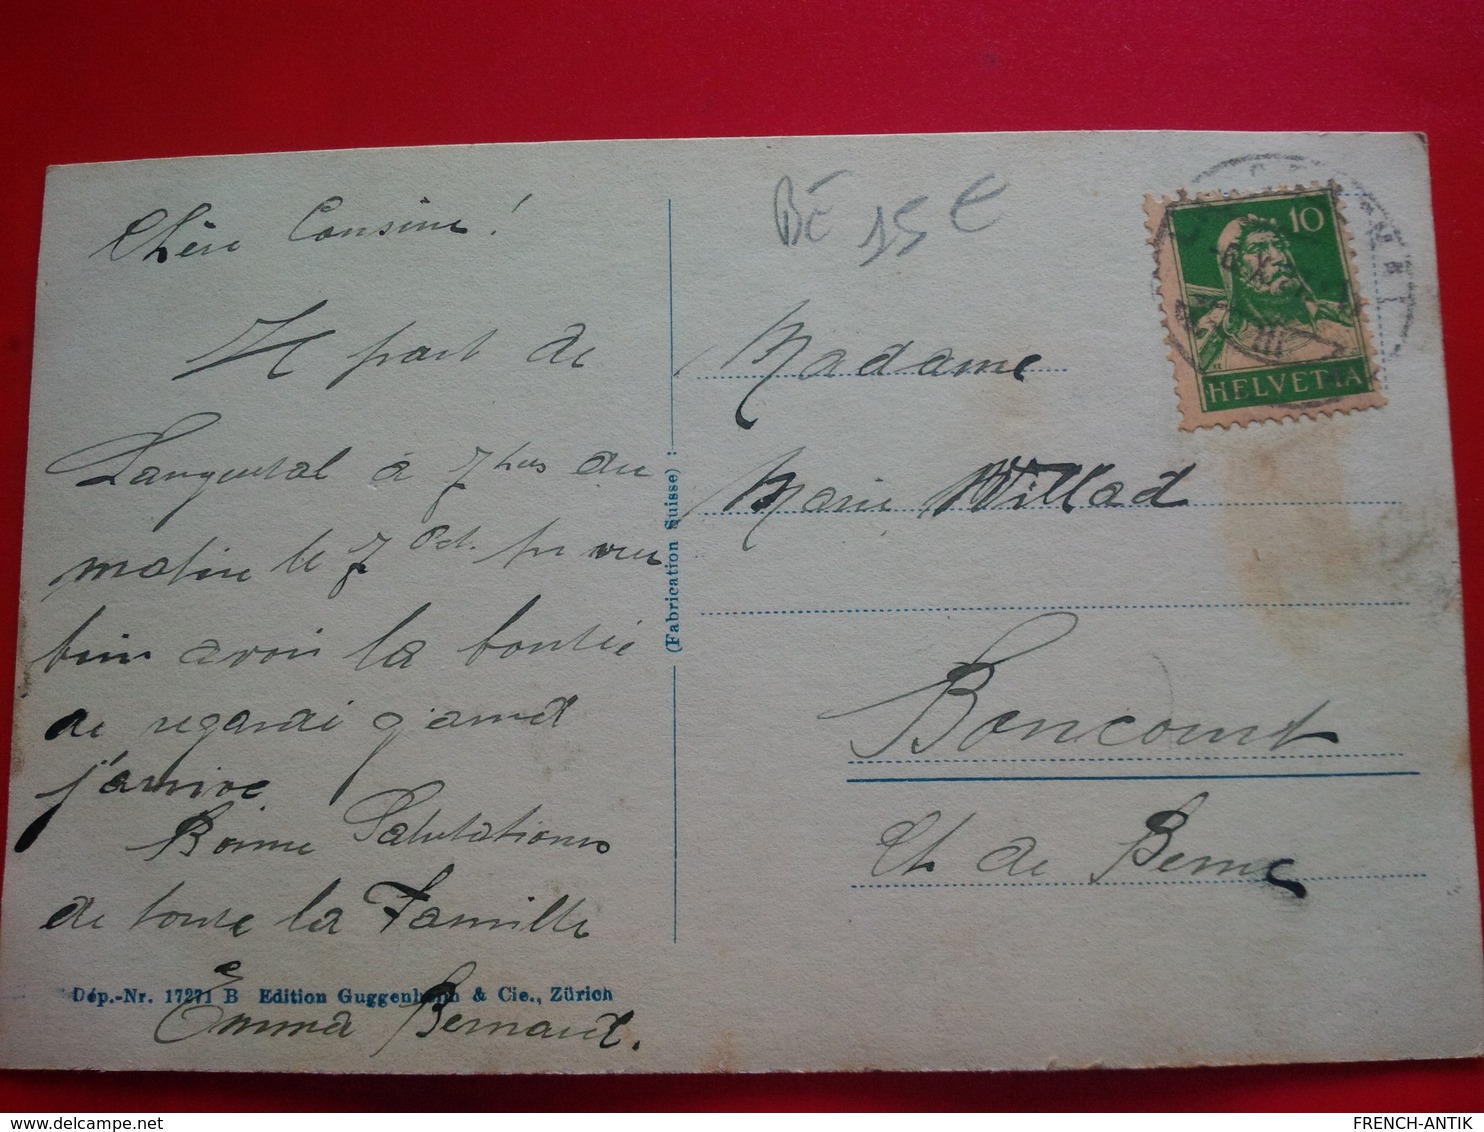 Chère Cousine !
Je part de
Langental à 7 hrs du
matin le 7 Oct. 
bien avoir la bonté
de regardé quand
j'arrive
Bonne Salutations
de toute la Famille
Emma Bernard.
Dép.-Nr. 17271 B Edition Guggenheim & Cie., Zürich
(Fabrication Suisse)
BE 15 €
10
HELVETIA
Madame
Marie Willad
Boncourt
Ct de Berne
FRENCH-ANTIK